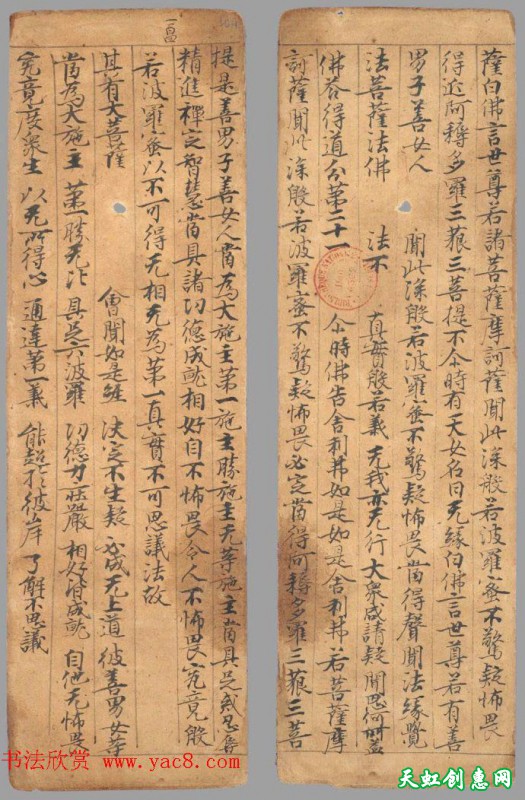 薩白佛言世尊若諸菩薩摩訶薩聞此深般若波羅蜜不驚疑怖畏
得近阿耨多羅三藐三菩提不尒時有天女名曰无緣白佛言世尊若有善
男子善女人 聞此深般若波羅蜜不驚疑怖畏當得聲聞法緣覺
法菩薩法佛 法不 真實般若義 无我亦无行 大衆咸請疑 聞思何
佛答得道分第二十一 尒時佛告舍利弗如是如是舍利弗若菩薩摩
訶薩聞此深般若波羅蜜不驚疑怖畏必定當得阿耨多羅三藐三菩
提是善男子善女人當為大施主第一施主勝施主无等施主當具足戒忍辱
精進禪定智慧當具諸功德成就相好自不怖畏令人不怖畏究竟般
若波羅蜜以不可得无相无為第一真實不可思議法故
其有大菩薩 會聞如是經 決定不生疑 必成无上道 彼善男女等
當為大施主 第一勝无比 具足六波羅 功德力莊嚴 相好皆成就 自他无怖畏
究竟度衆生 以无所得心 通達第一義 能超於彼岸 了解不思議
书法欣赏 www.yac8.com
天虹创惠网